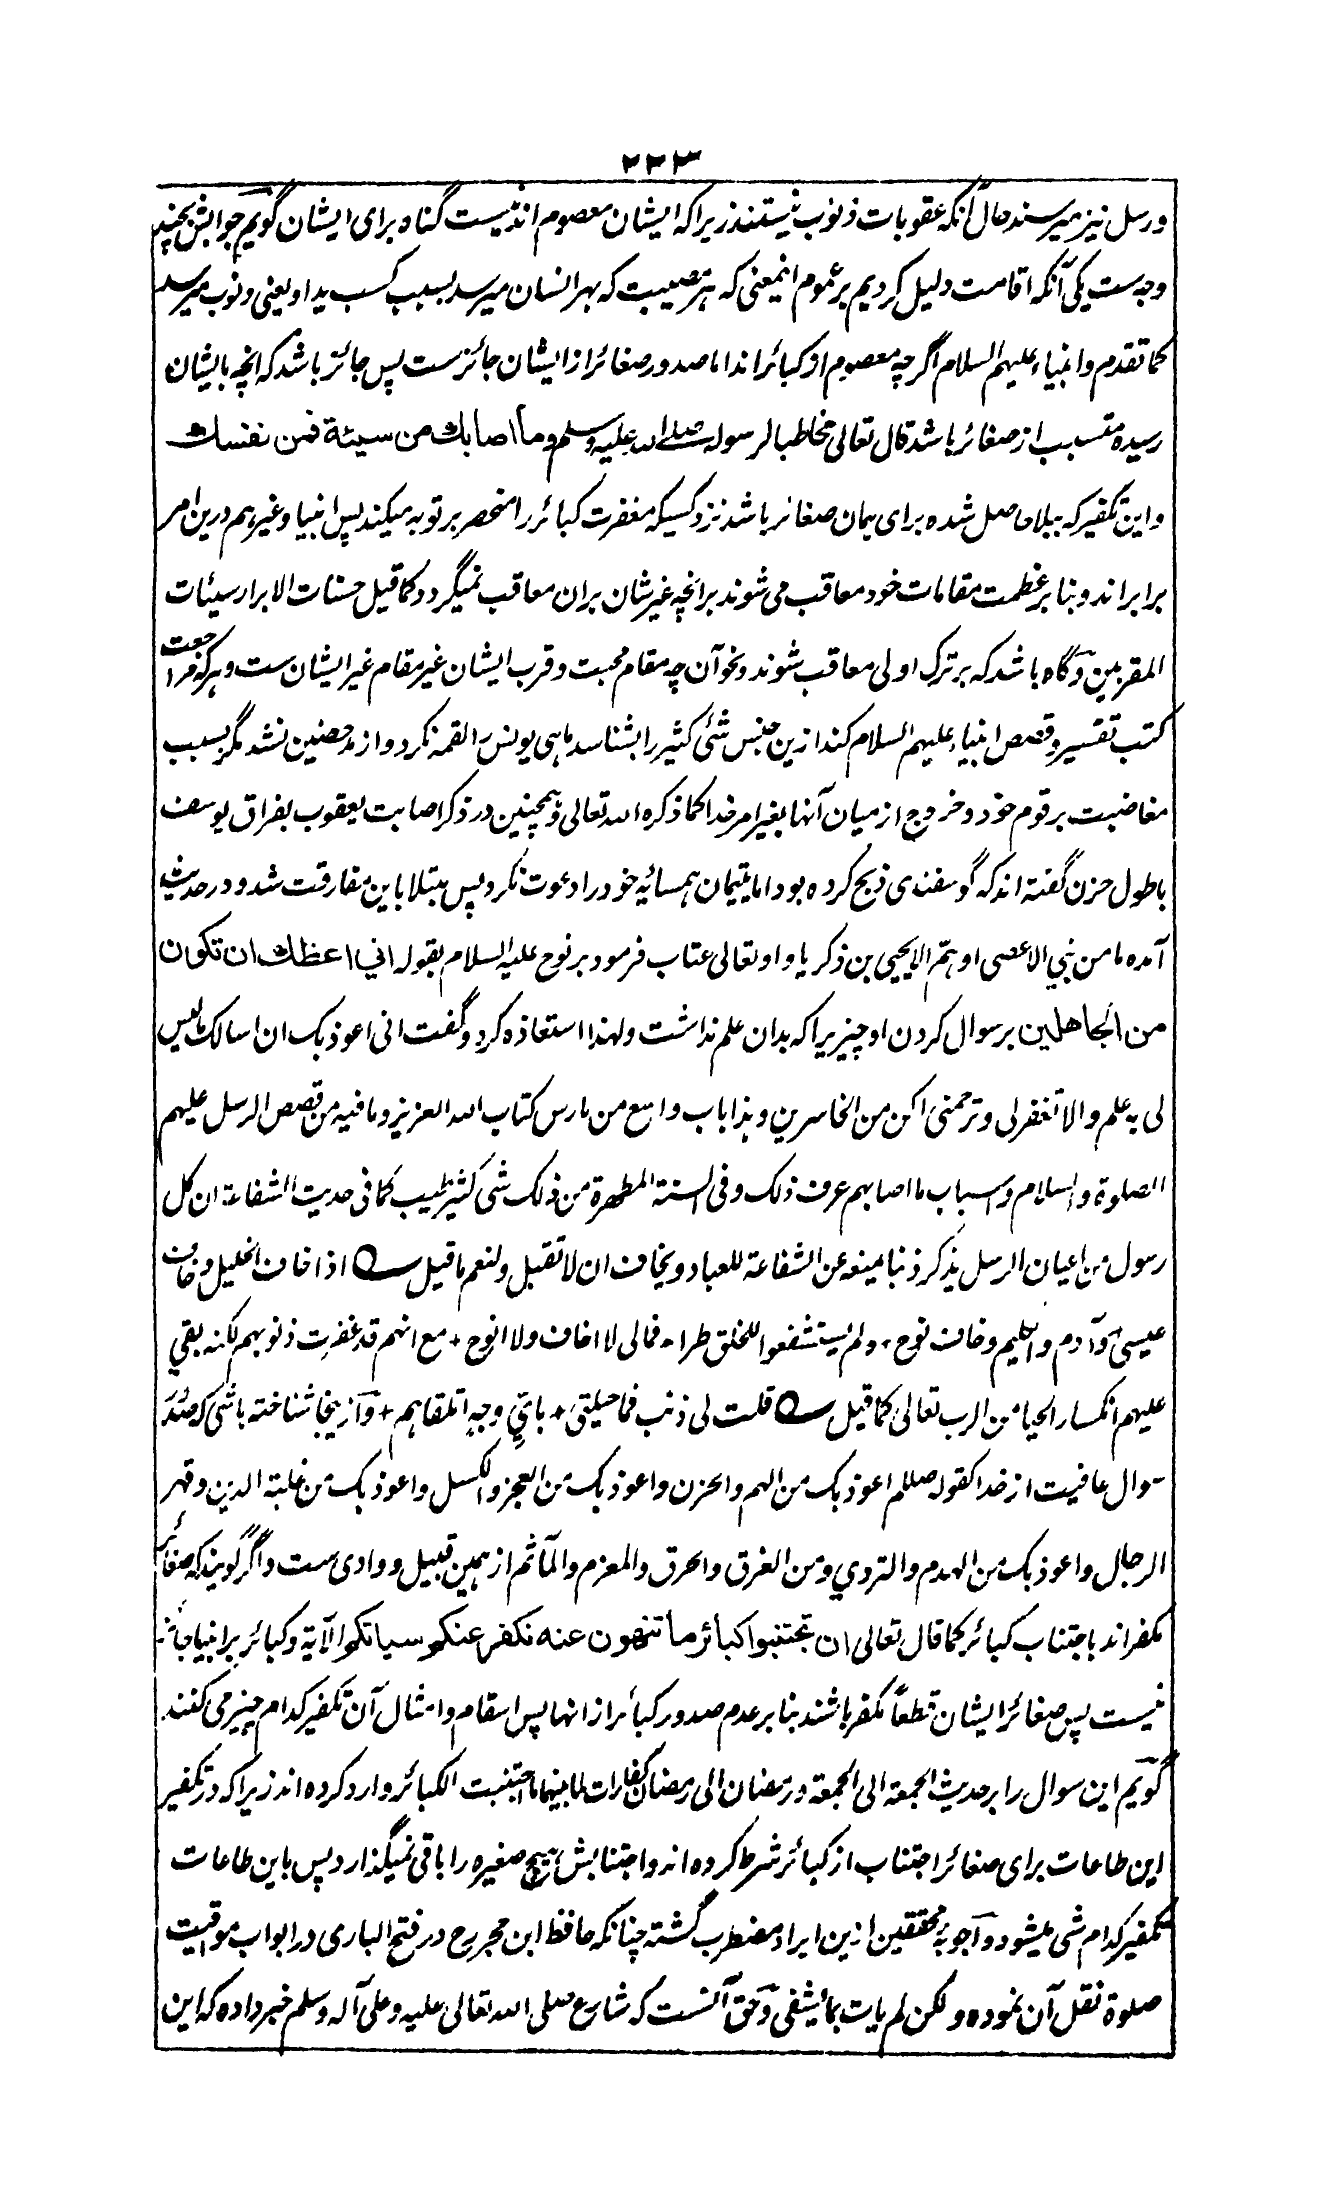 ۲۲۳
ورسل نیز میرسند حال آنکه عقوبات ذنوب نیستند زیرا که ایشان معصوم اند نیست گناه برای ایشان گویم جوابش بچند
وجه ست یکی آنکه اقامت دلیل کردیم بر عموم اینمعنی که هر مصیبت که بهر انسان میرسد بسبب کسب ید او یعنی ذنوب میرسد
کما تقدم وانبیاء علیهم السلام اگرچه معصوم از کبائر اند اما صدور صغائر از ایشان جائز ست پس جائز باشد که انچه بایشان
رسیده متسبب از صغائر باشد قال تعالی مخاطبا لرسوله صلی الله علیه وسلم وما اصابك من سیئة فمن نفسك
واین تکفیر که ببلا حاصل شده برای همان صغائر باشد نزد کسیکه مغفرت کبائر را منحصر بر توبه میکند پس انبیا وغیرهم درین امر
برابر اند وبنا بر عظمت مقامات خود معاقب می شوند بر انچه غیرشان بران معاقب نمیگردد کما قیل حسنات الابرار سیئات
المقربین وگاه باشد که بر ترک اولی معاقب شوند ونحو آن چه مقام محبت وقرب ایشان غیر مقام غیر ایشان ست وهرکه مراجعت
کتب تفسیر وقصص انبیاء علیهم السلام کند ازین جنس شئ کثیر را بشناسد ماهی یونس را لقمه نکرد واز مدحضین نشد مگر بسبب
مغاضبت بر قوم خود وخروج از میان آنها بغیر امر خدا کما ذکره الله تعالی وهمچنین در ذکر اصابت یعقوب بفراق یوسف
با طول حزن گفته اند که گوسفندی ذبح کرده بود اما یتیمان همسائیه خود را دعوت نکرد پس مبتلا باین مفارقت شد ودر حدیث
آمده ما من نبي الا عصی او هم الا یحیی بن ذکریا واو تعالی عتاب فرمود بر نوح علیه السلام بقوله اني اعظك ان تكون
من الجاهلین بر سوال کردن او چیزیرا که بدان علم نداشت ولهذا استعاذه کرد وگفت انی اعوذ بک ان اسالک ما لیس
لی به علم والا تغفر لی وترحمنی اکن من الخاسرین وهذا باب واسع من مارس کتاب الله العزیز وما فیه من قصص الرسل علیهم
الصلوة والسلام واسباب ما اصابهم عرف ذلک وفی السنة المطهرة من ذلک شی کثیر طیب کما فی حدیث الشفاعة ان کل
رسول من اعیان الرسل یذکر ذنبا یمنعه عن الشفاعة للعباد ویخاف ان لا تقبل ولنعم ما قیل اذا خاف الخلیل وخاف
عیسی وآدم والکلیم وخاف نوح + ولم یستشفعوا للخلق طرا + فمالی لا اخاف ولا انوح + مع انهم قد غفرت ذنوبهم لکنه بقي
علیهم انکسار الحیا من الرب تعالی کما قیل قلت لی ذنب فما حیلتی + بايِّ وجهٍ اتلقاهم + وازینجا شناخته باشی که صدر
سوال عافیت از خدا کقوله صللم اعوذ بک من الهم والحزن واعوذ بک من العجز والکسل واعوذ بک من غلبة الدین وقهر
الرجال واعوذ بک من الهدم والتردي ومن الغرق والحرق والمغرم والمآثم از همین قبیل ووادی ست واگر گویند که صغائر
مکفر اند باجتناب کبائر کما قال تعالی ان تجتنبوا کبائر ما تنهون عنه نکفر عنکم سیاتکم الآیة وکبائر بر انبیا جائز
نیست پس صغائر ایشان قطعاً مکفر باشند بنا بر عدم صدور کبائر از انها پس اسقام وامثال آن تکفیر کدام چیز می کنند
گویم این سوال را بر حدیث الجمعة الی الجمعة ورمضان الی رمضان کفارات لما بینهما ما اجتنبت الکبائر وارد کرده اند زیرا که در تکفیر
این طاعات برای صغائر اجتناب از کبائر شرط کرده اند واجتنابش هیچ صغیره را باقی نمیگذارد پس باین طاعات
تکفیر کدام شی میشود واجوبهٔ محققین ازین ایراد مضطرب گشته چنانکه حافظ ابن حجر رح در فتح الباری در ابواب مواقیت
صلوة نقل آن نموده ولکن لم یات بما یشفی وحق آنست که شارع صلی الله تعالی علیه وعلی آله وسلم خبر داده که این